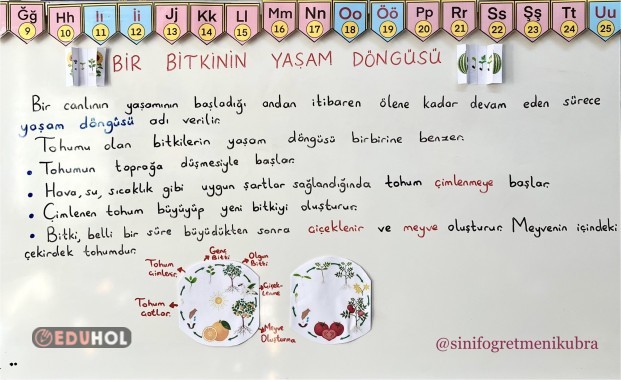 Ğğ Hh Iı İi Jj Kk Ll Mm Nn Oo Öö Pp Rr Ss Şş Tt Uu
9 10 11 12 13 14 15 16 17 18 19 20 21 22 23 24 25
BİR BİTKİNİN YAŞAM DÖNGÜSÜ
Bir canlının yaşamının başladığı andan itibaren ölene kadar devam eden sürece
yaşam döngüsü adı verilir.
Tohumu olan bitkilerin yaşam döngüsü birbirine benzer.
• Tohumun toprağa düşmesiyle başlar.
• Hava, su, sıcaklık gibi uygun şartlar sağlandığında tohum çimlenmeye başlar.
• Çimlenen tohum büyüyüp yeni bitkiyi oluşturur.
• Bitki, belli bir süre büyüdükten sonra çiçeklenir ve meyve oluşturur. Meyvenin içindeki
çekirdek tohumdur.
Genç
Bitki
Olgun
Bitki
Tohum
çimlenir.
Çiçek-
lenme
Tohum
çatlar.
Meyve
Oluşturma
EDUHOL
@sinifogretmenikubra